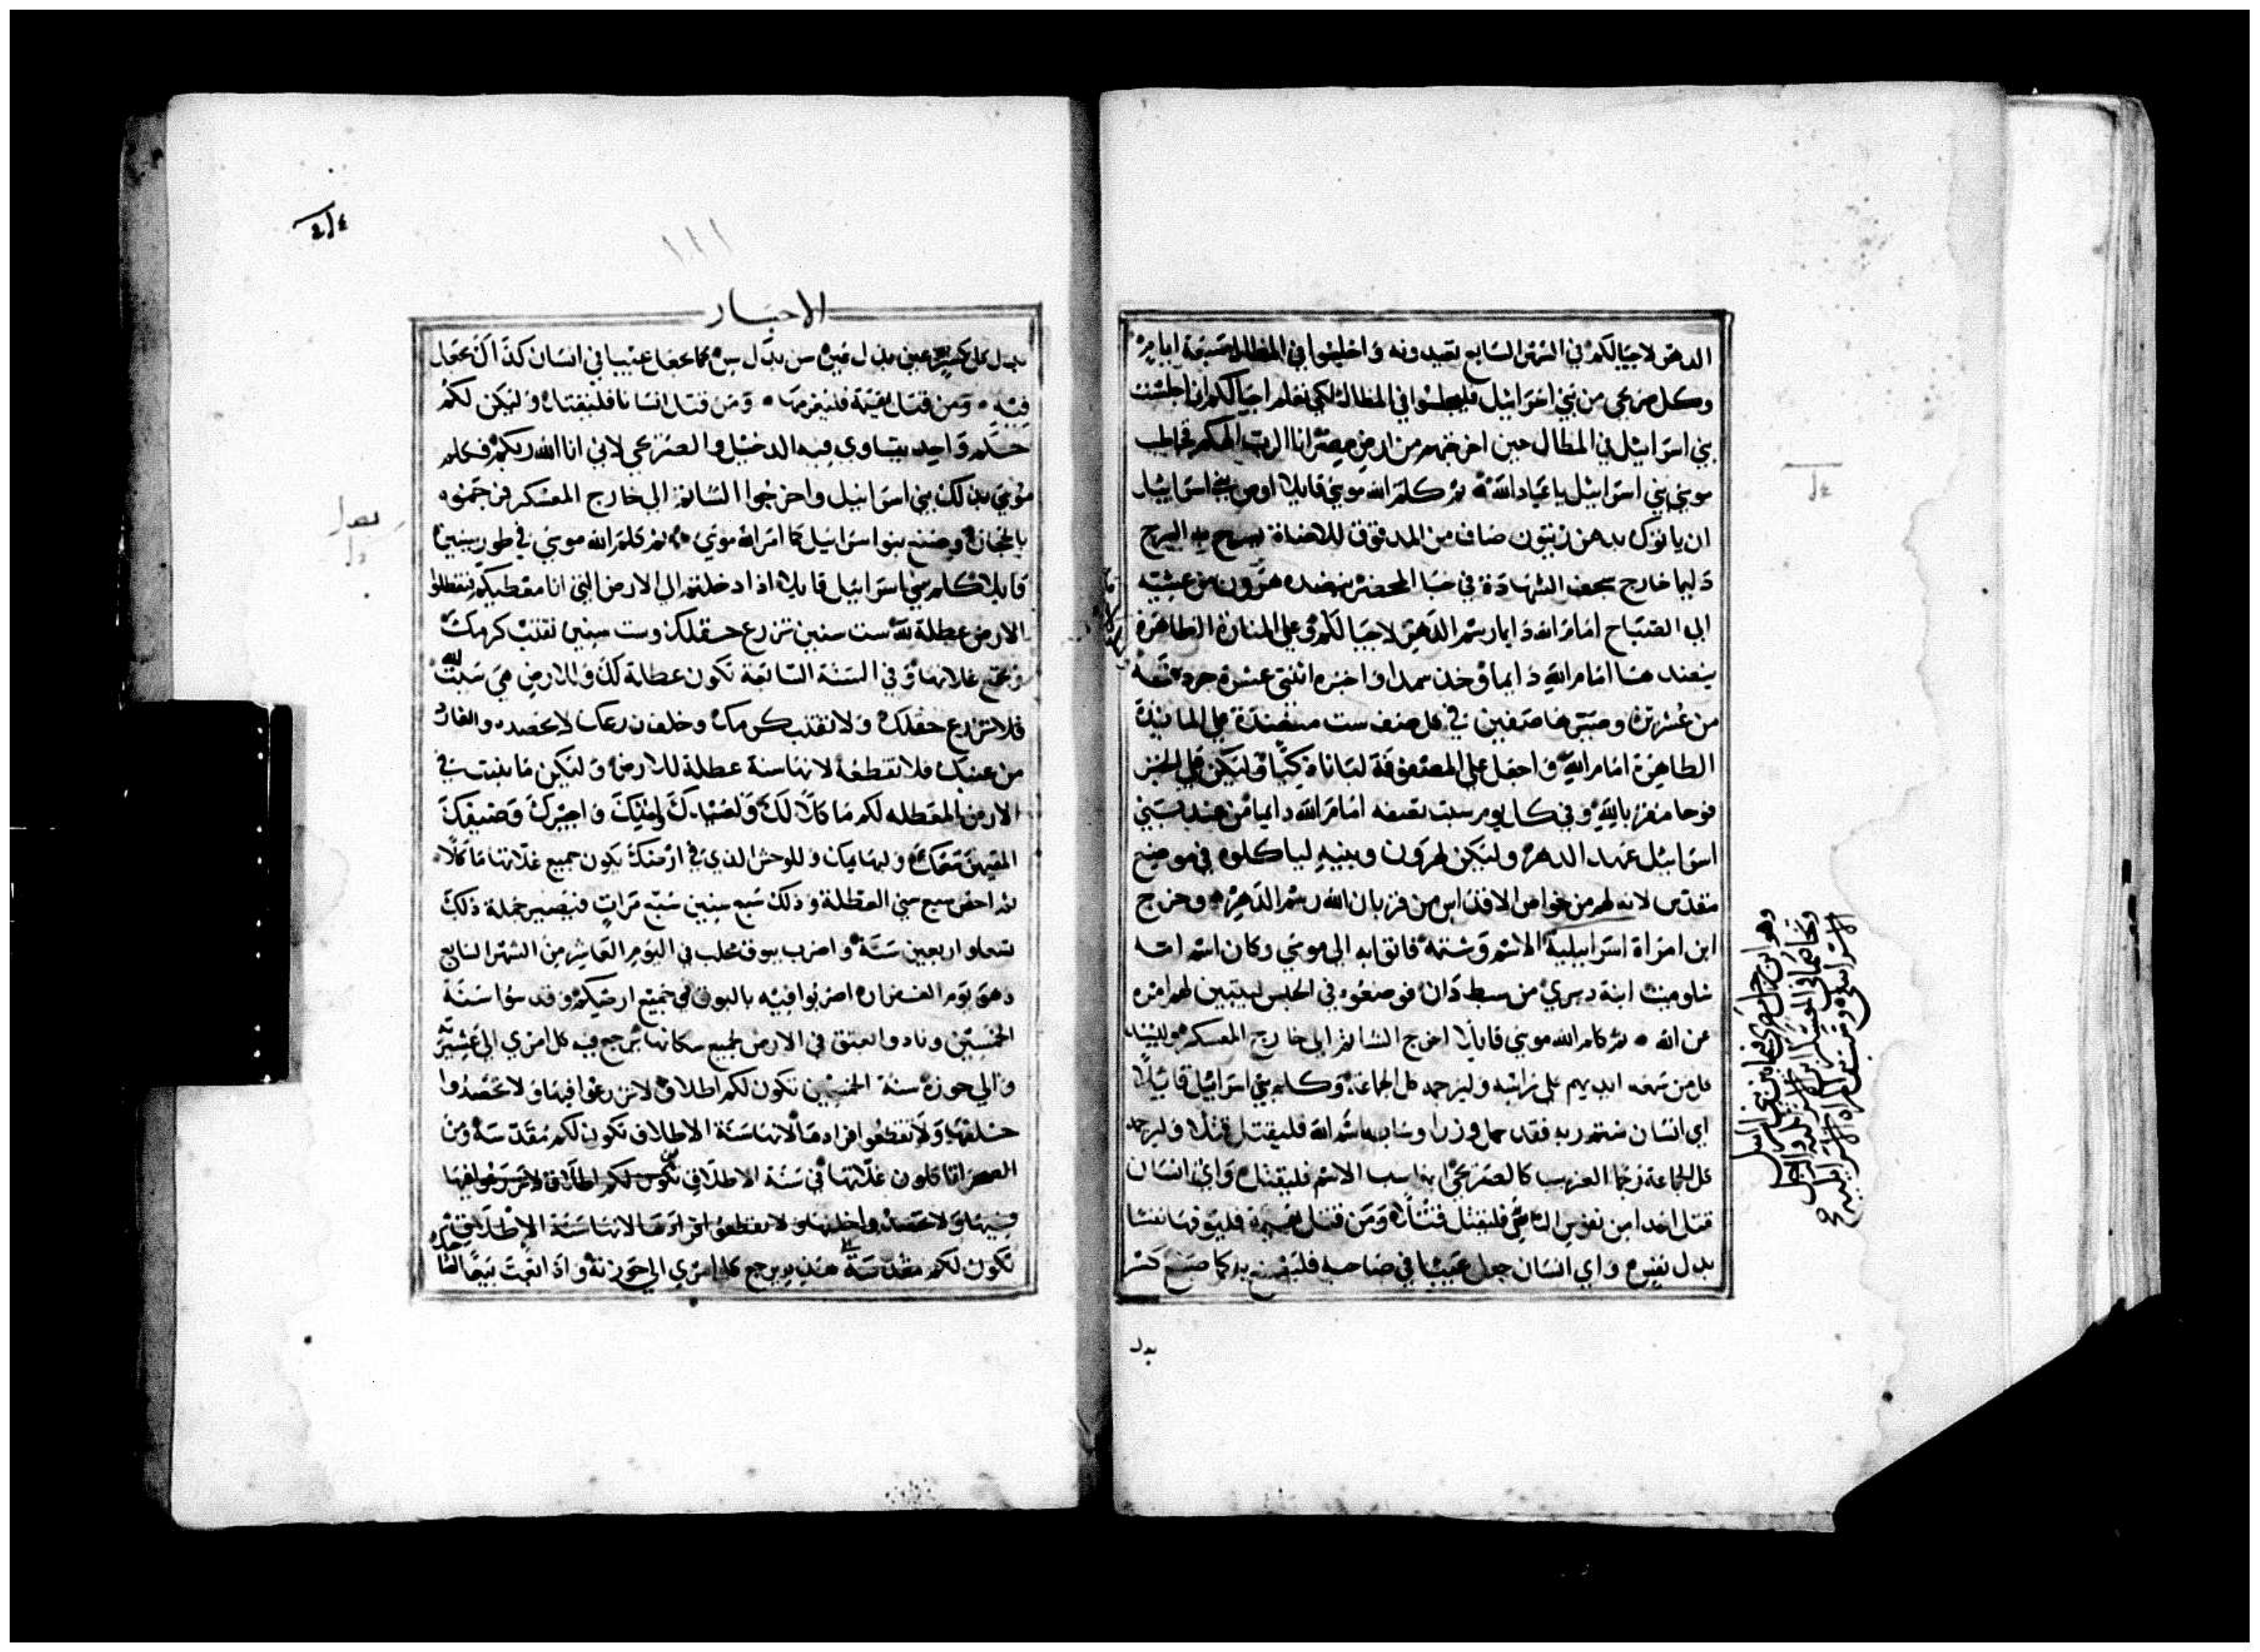 الدهر لاجيالكم في الشهر السابع تعيدونه واجلسوا في المظال سبعة ايام
وكل صريحي من بني اسرائيل فليجلسوا في المظال لكي تعلم اجيالكم اني اجلست
بني اسرائيل في المظال حين اخرجتهم من ارض مصر انا الرب الهكم فخاطب
موسى بني اسرائيل باعياد الله ثم كلم الله موسى قايلا اوص بني اسرائيل
ان ياتوك بدهن زيتون صاف من المدقوق للاضاة ليسرج به السرج
دايما خارج سجف الشهادة في خبا المحضر ينضده هرون من عشيته
الى الصباح امام الله دايما رسم الدهر لاجيالكم وعلى المنارة الطاهرة
ينضد هنا امام الله دايما وخذ سمدا واخبزه اثنتي عشرة جردقة
من عشرين وصيرها صفين في كل صف ست منضدة على المايدة
الطاهرة امام الله واجعل على المصفوفة لبانا ذكيا وليكن على الخبز
فوحا مقربا لله وفي كل يوم سبت تصفه امام الله دايما من عند بني
اسرائيل عهد الدهر وليكن لهرون وبنيه لياكلوه في موضع
مقدس لانه لهم من خواص الاقداس من قربان الله رسم الدهر وخرج
ابن امراة اسرائيلية الاسم وشتمه فاتوا به الى موسى وكان اسم امه
شلوميت ابنة دبري من سبط دان فوضعوه في الحبس ليتبين لهم امره
عن الله ثم كلم الله موسى قايلا اخرج الشاتم الى خارج المعسكر وليسند
كل من سمعه ايديهم على راسه وليرجمه كل الجماعة وكلم بني اسرائيل قايلا
اي انسان شتم ربه فقد حمل وزرا وساب باسم الله فليقتل قتلا وليرجمه
كل الجماعة رجما الغريب كالصريحي اذا سب الاسم فليقتل واي انسان
قتل احدا من نفوس الناس فليقتل قتلا ومن قتل بهيمة فليوفها نفسا
بدل نفس واي انسان جعل عيبا في صاحبه فليصنع به كما صنع كسر
بدل
وهو ابن رجل مصري فيما بين بني اسرائيل
وتخاصما في المعسكر ابن الاسرائيلية والرجل
الاسرائيلي وسب ابن المراة الاسرائيلية
الاحبار
بدل كسر عين بدل عين سن بدل سن كما جعل عيبا في انسان كذاك يجعل
فيه ومن قتل بهيمة فليغرمها ومن قتل انسانا فليقتل وليكن لكم
حكم واحد يتساوى فيه الدخيل والصريحي لاني انا الله ربكم فكلم
موسى بذلك بني اسرائيل واخرجوا الشاتم الى خارج المعسكر فرجموه
بالحجارة وصنع بنو اسرائيل كما امر الله موسى ثم كلم الله موسى في طور سينين
قايلا كلم بني اسرائيل قايلا اذا دخلتم الى الارض التي انا معطيكم فتعطلوا
الارض عطلة لله ست سنين تزرع حقلك وست سنين تقنب كرمك
وتجمع غلاتها وفي السنة السابعة تكون عطلة لك وللارض هي سبت لله
فلا تزرع حقلك ولا تقنب كرمك وخلف زرعك لا تحصده والفارد
من عنبك فلا تقطفه لانها سنة عطلة للارض وليكن ما ينبت في
الارض المعطله لكم ماكلا لك ولعبدك وامتك واجيرك وضيفك
المقيمين معك ولبهايمك وللوحش الذي في ارضك يكون جميع غلاتها ماكلا
ثم احص سبع سني العطلة وذلك سبع سنين سبع مرات فيصير جملة ذلك
تسعا واربعين سنة واضرب ببوق مجلب في اليوم العاشر من الشهر السابع
وهو يوم الغفران اضربوا فيه بالبوق في جميع ارضيكم وقدسوا سنة
الخمسين ونادوا بعتق في الارض لجميع سكانها يرجع فيه كل امري الى عشيرته
والى حوزه سنة الخمسين تكون لكم اطلاق لا تزرعوا فيها ولا تحصدوا
خلفها ولا تقطعوا افرادها لانها سنة الاطلاق تكون لكم مقدسة ومن
الصحرا تاكلون غلاتها في سنة الاطلاق تكون لكم اطلاق لا تزرعوا فيها
فيها ولا تحصدوا خلفها ولا تقطعوا افرادها لانها سنة الاطلاق
تكون لكم مقدسة حينيذ يرجع كل امري الى حوزته واذا ابعت بيعا